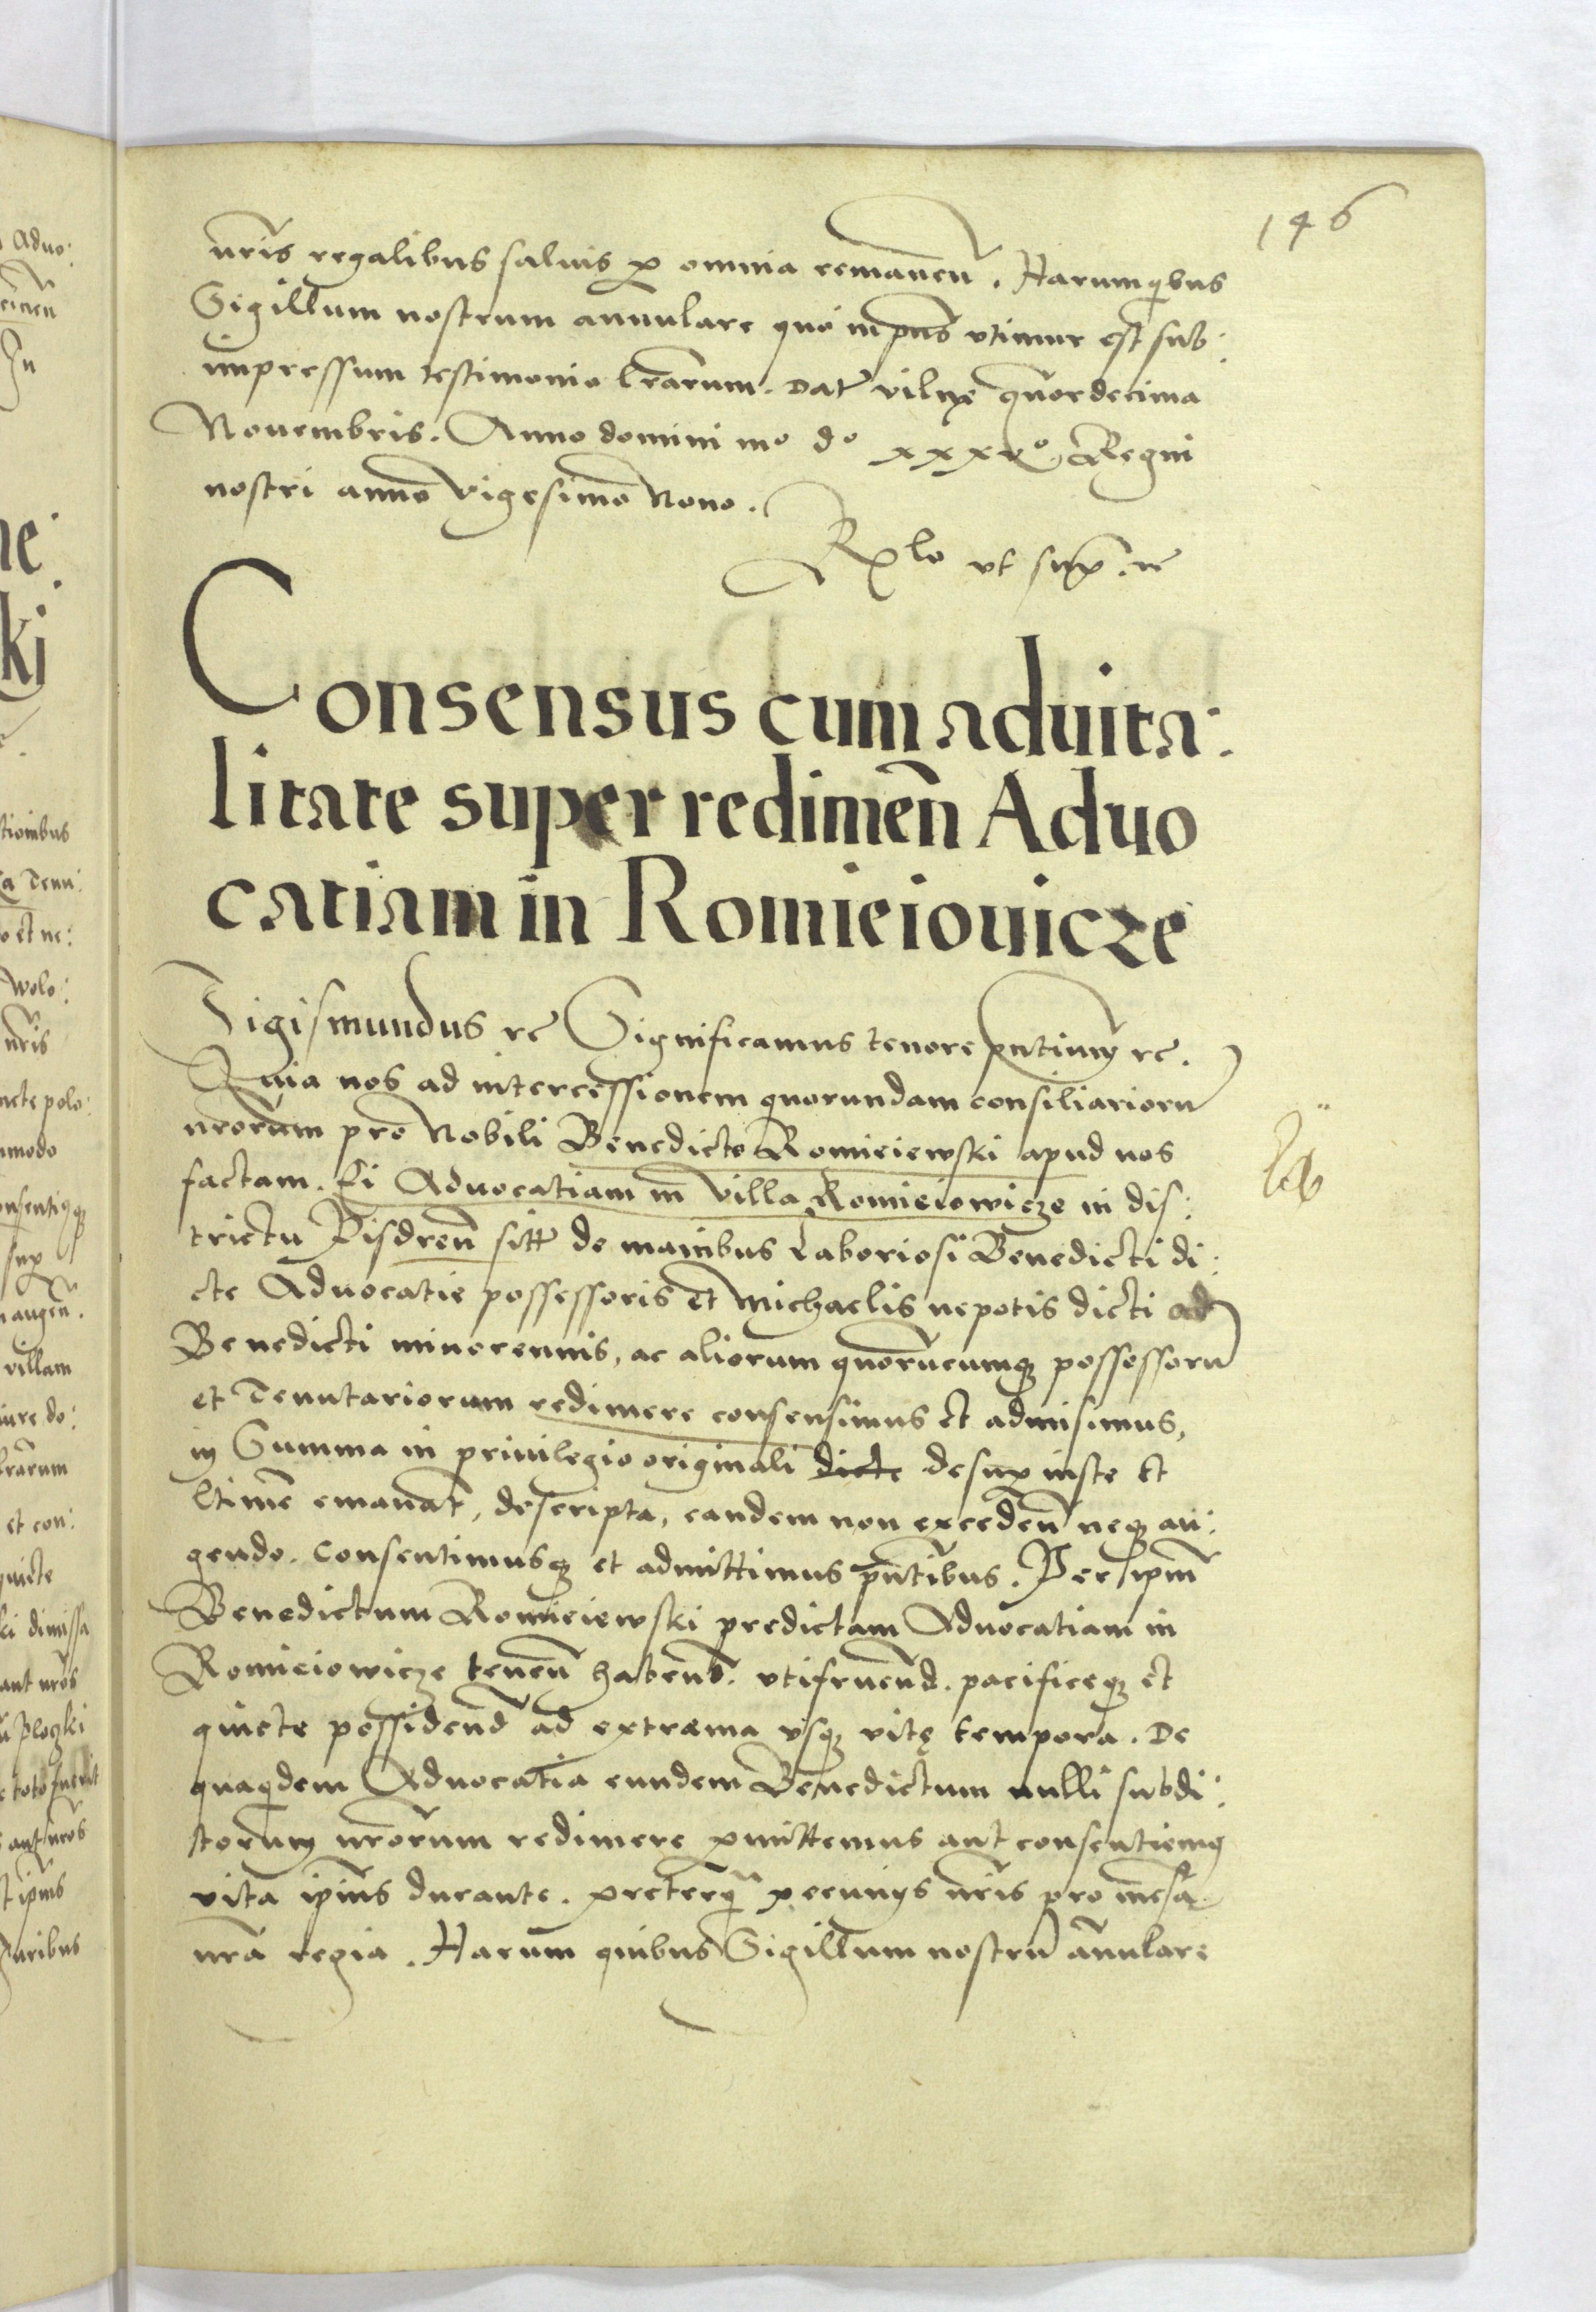 146
nr̃is regalibus saluis p omnia remaneñ. Harum q̃bus
Sigillum nostrum annulare quo in pñs vtimur est sub:
impressum testimonio lr̃arum. Dat vilnę quordecima
Nouembris. Anno domini mo do xxxvo Regni
nostri anno vigesimo Nono.
Rlo vt sup. rc
Consensus cum aduita:
litate super redimeñ Aduo
catiam in Romieiouicze
Sigismundus rc Significamus tenore pñtium rc.
Quia nos ad intercessionem quorundam consiliarioru
nr̃orum pro Nobili Benedicto Romieiewski apud nos
factam. Ei Aduocatiam in villa Romieiowicze in dis:
trictu Pisdreñ sitt de manibus Laboriosi Benedicti di:
cte Aduocatie possessoris et Michaelis nepotis dicti
Benedicti minorennis, ac aliorum quorũcumq possessorũ
et Tenutariorum redimere consensimus et admisimus,
in Summa in priuilegio originali dicte desup iuste et
ltime emanat, descripta, eandem non excedeñ neq au:
gendo. Consentimusq et admittimus pñtibus. Per ipm
Benedictum Romieiewski predictam Aduocatiam in
Romieiowicze teneñ habend. vtifruend. pacificeq et
quiete possidend ad extrema vsq vitę tempora. De
quaqdem Aduocatia eundem Benedictum nulli subdi:
torum nr̃orum redimere pmittemus aut consentiemq
vita ipius durante. preterq pecunys nr̃is pro mensa
nr̃a regia. Harum quibus Sigillum nostrũ añulare